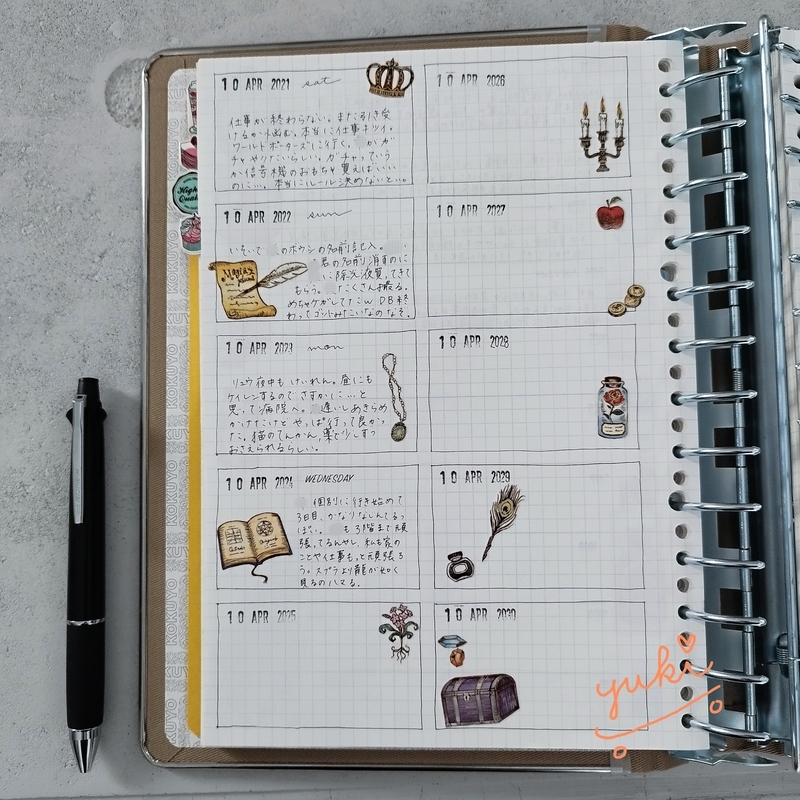 10 APR 2021 sat
仕事が終わらない。また引き受
けるか悩む。本当に仕事キツイ。
ワールドポーターズに行く。 がガ
チャやりたいらしい。ガチャっていう
か信号機のおもちゃ買えばいい
のに…。本当にルール決めないと…。
10 APR 2022 sun
のボウシの名前記入。
君の名前消すのに
に除光液買ってきて
もらう。 たくさん撮る。
めちゃケガしてたw DB終
わってゴットみたいなのなぞ。
10 APR 2023 mon
リュウ夜中もけいれん。昼にも
ケイレンするのでさすがに…と
思って病院へ。 遅いしあきらめ
かけたけどやっぱ行って良かっ
た。猫のてんかん、薬で少しずつ
おさえられるらしい。
10 APR 2024 WEDNESDAY
個別に行き始めて
3日目、かなりなじんでるっ
ぽい。 も3階まで頑
張ってるんやし、私も家の
ことや仕事もっと頑張ろ
う。スプラより龍が如く
見るのハマる。
10 APR 2025
10 APR 2026
10 APR 2027
10 APR 2028
10 APR 2029
10 APR 2030
KOKUYO
High
Quality
yuki